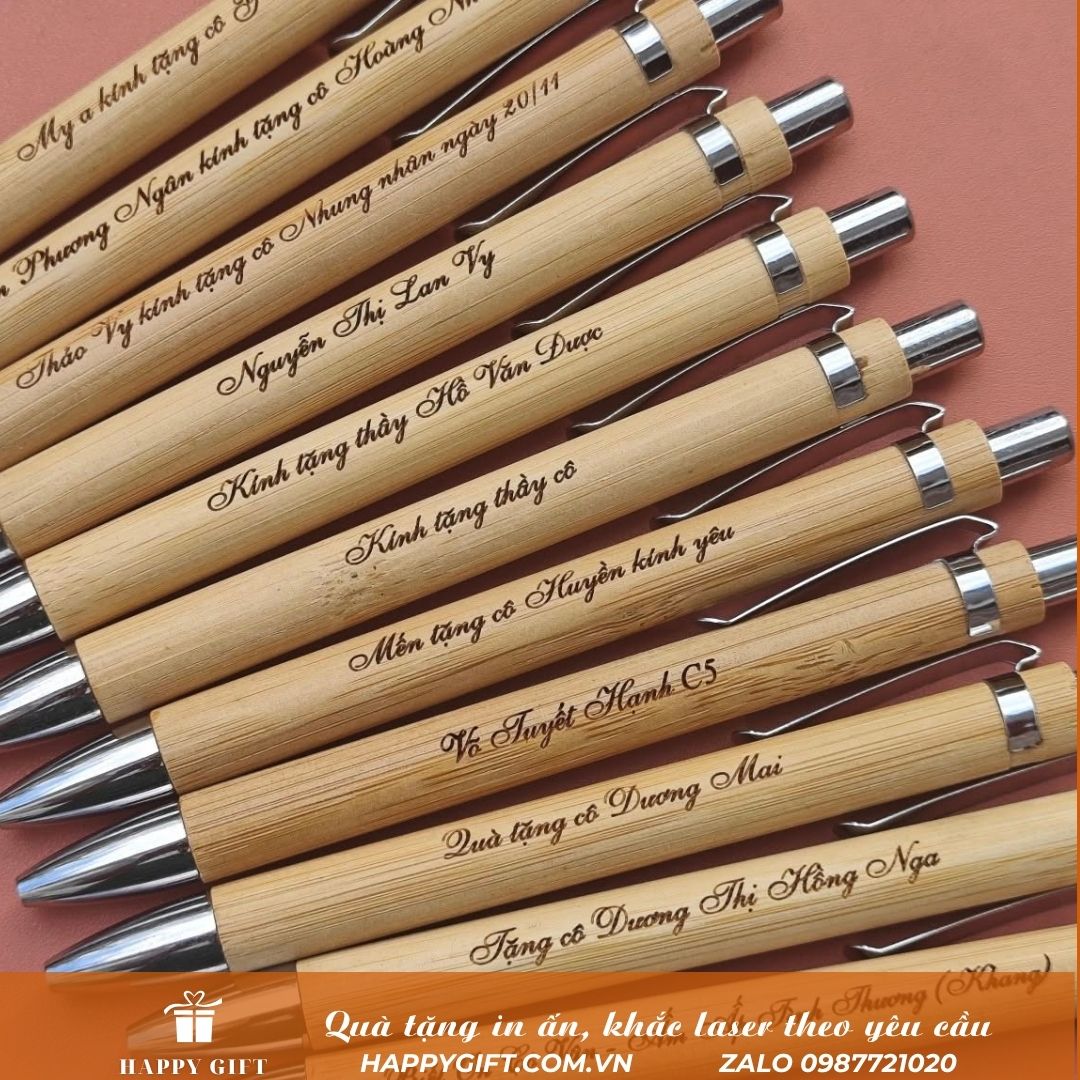 My a kính tặng cô
Phương Ngân kính tặng cô Hoàng
Thảo Vy kính tặng cô Nhung nhân ngày 20/11
Nguyễn Thị Lan Vy
Kính tặng thầy Hồ Văn Dược
Kính tặng thầy cô
Mến tặng cô Huyền kính yêu
Võ Tuyết Hạnh C5
Quà tặng cô Dương Mai
Tặng cô Dương Thị Hồng Nga
Thương (Khang)
HAPPY GIFT
Quà tặng in ấn, khắc laser theo yêu cầu
HAPPYGIFT.COM.VN ZALO 0987721020